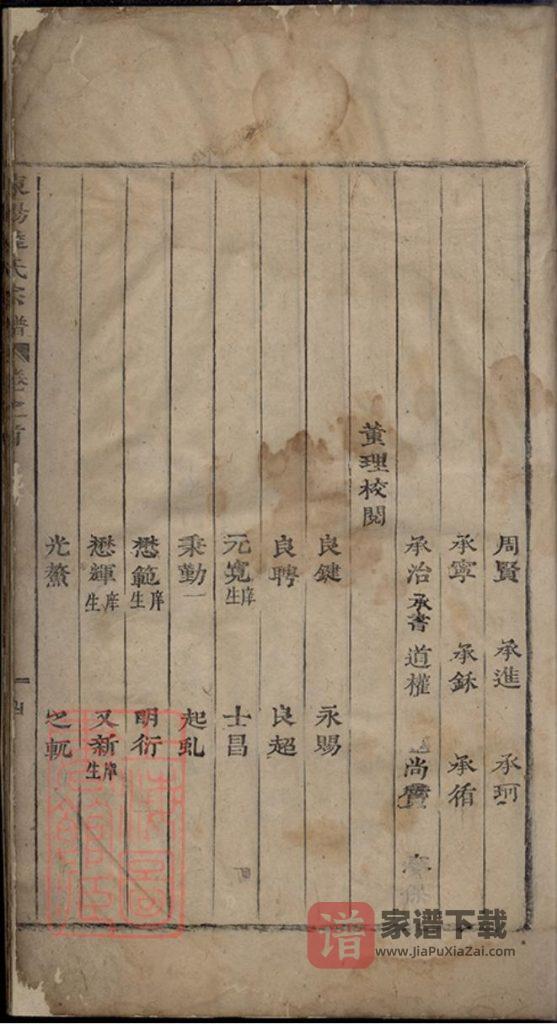 周賢 承進 承珂
承寧 承銾 承脩
承治 承書 道權 尚賢
董理校閱
良鍵 永賜
良聘 良超
元寬庠生 士昌
秉勤 起虬
懋範庠生 明衍
懋輝庠生 又新庠生
光鰲 之軏
氏宗譜 卷之首
谱 家谱下载
www.JiaPuXiaZai.com